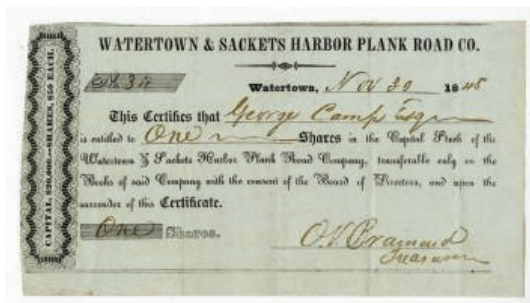 CAPITAL, $20,000.—SHARES, $50 EACH.
WATERTOWN & SACKETS HARBOR PLANK ROAD CO.
No. 34
Watertown, Nov 30 1848
This Certifies that George Camp Esqr
is entitled to One Shares in the Capital Stock of the
Watertown & Sackets Harbor Plank Road Company, transferable only on the
Books of said Company with the consent of the Board of Directors, and upon the
surrender of this Certificate.
One Shares.
O. V. Brainard
Treasurer